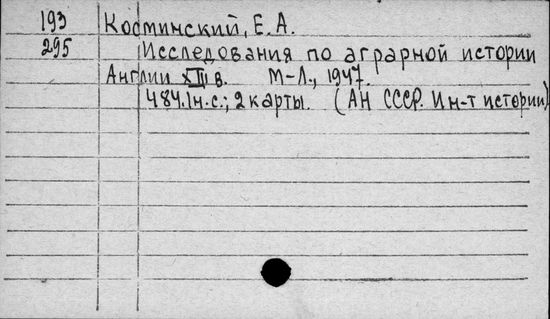 193 Косминский, Е. А.
295 Исследования по аграрной истории
Англии XIII в. М-Л., 1947.
484.1н.с.; 2 карты. (АН СССР. Ин-т истории)